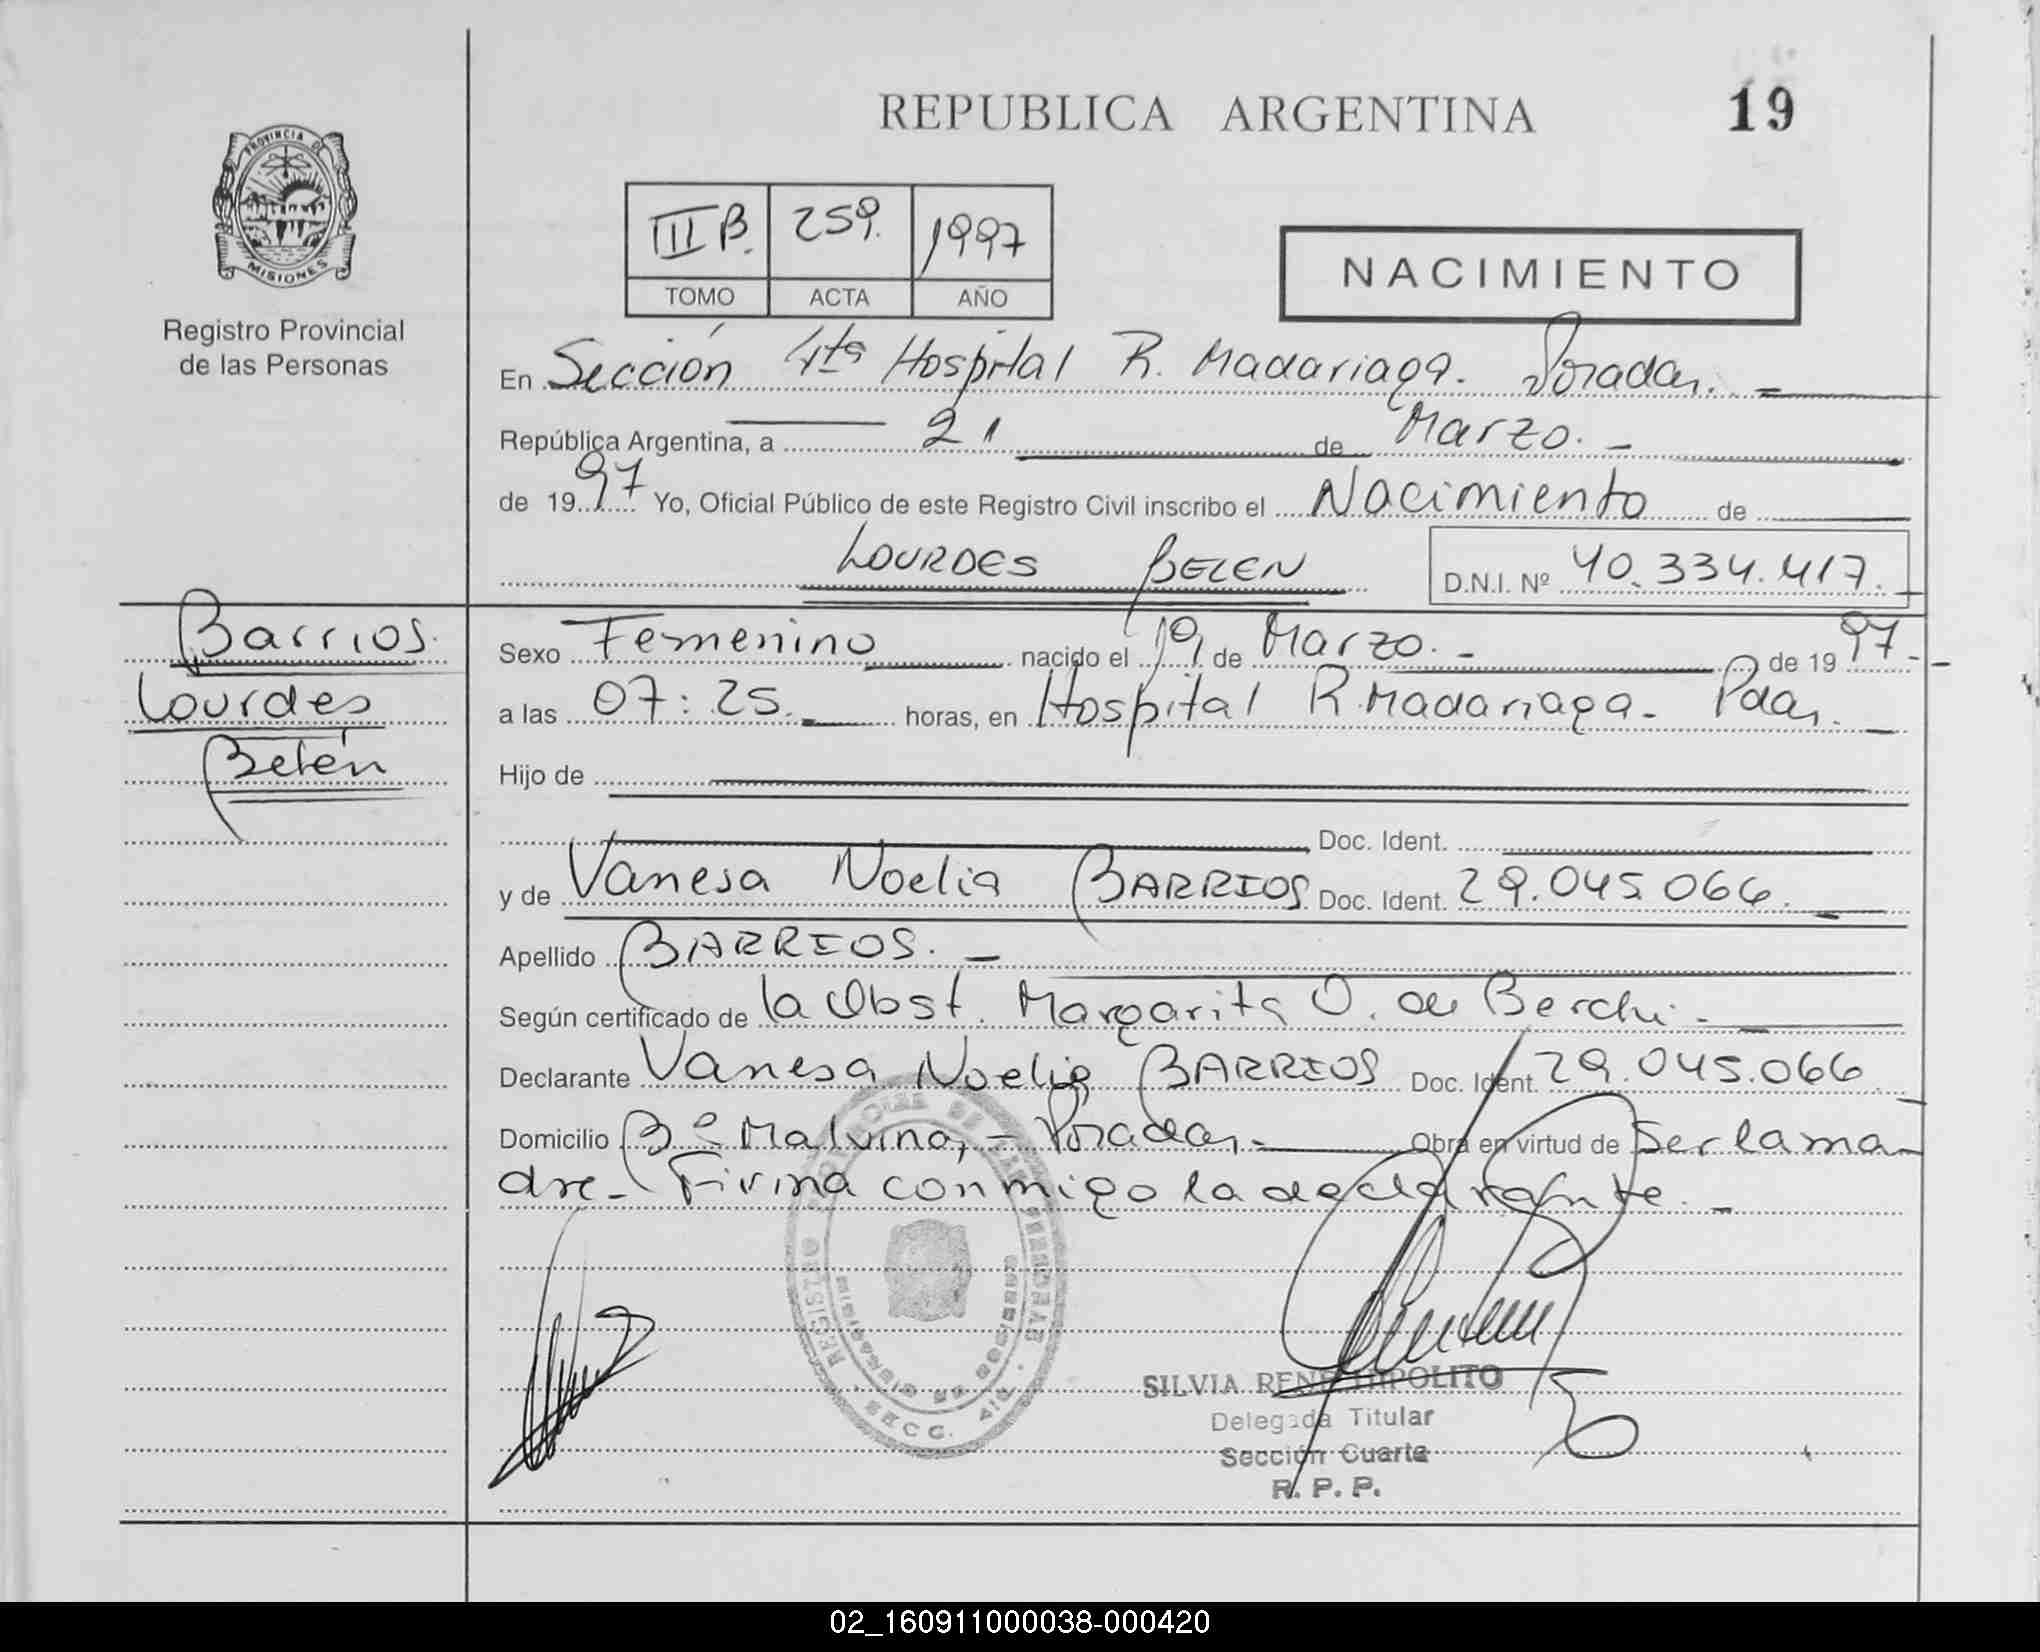 REPUBLICA ARGENTINA 19
PROVINCIA DE
MISIONES
Registro Provincial
de las Personas
III B. 259. 1997
TOMO ACTA AÑO
NACIMIENTO
En Sección 4ta Hospital R. Madariaga. Posadas.
República Argentina, a 21 de Marzo.
de 1997 Yo, Oficial Público de este Registro Civil inscribo el Nacimiento de
LOURDES BELEN D.N.I. Nº 40.334.417.
Barrios
Lourdes
Belén
Sexo Femenino nacido el 19 de Marzo. de 1997.
a las 07:25. horas, en Hospital R. Madariaga. Pdas.
Hijo de
Doc. Ident.
y de Vanesa Noelia BARRIOS Doc. Ident. 29.045.066.
Apellido BARRIOS.
Según certificado de la Obst. Margarita O. de Berchi.
Declarante Vanesa Noelia BARRIOS Doc. Ident. 29.045.066.
Domicilio Bº Malvinas - Posadas. Obra en virtud de Ser la ma-
dre. Firma conmigo la declarante.
REGISTRO PROVINCIAL DE LAS PERSONAS
SECC. 4ta.
SILVIA RENE HIPOLITO
Delegada Titular
Sección Cuarta
R. P. P.
02_160911000038-000420